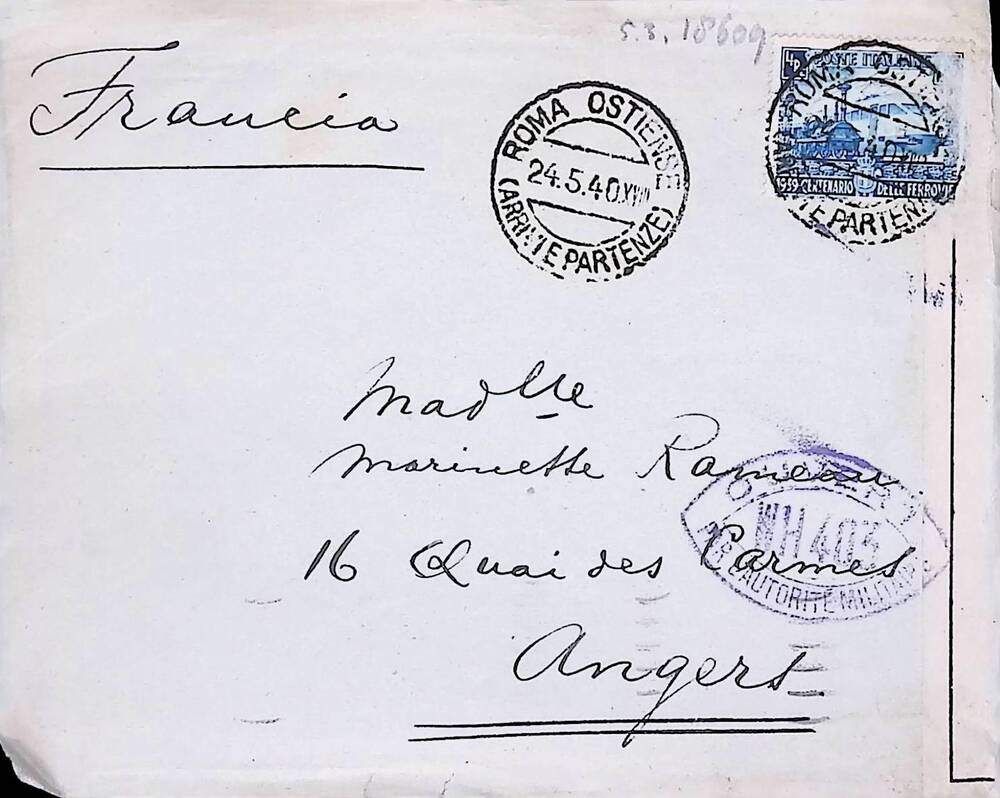 S.3. 18609
Francia
ROMA OSTIENSE
24.5.40.XVIII
(ARRIVI E PARTENZE)
POSTE ITALIANE
ROMA
1939-CENTENARIO DELLE FERROVIE
E PARTEN
Madlle
Marinette Rameau
16 Quai des Carmes
Angers
OUVERT
WH 403
PAR L'AUTORITÉ MILITAIRE